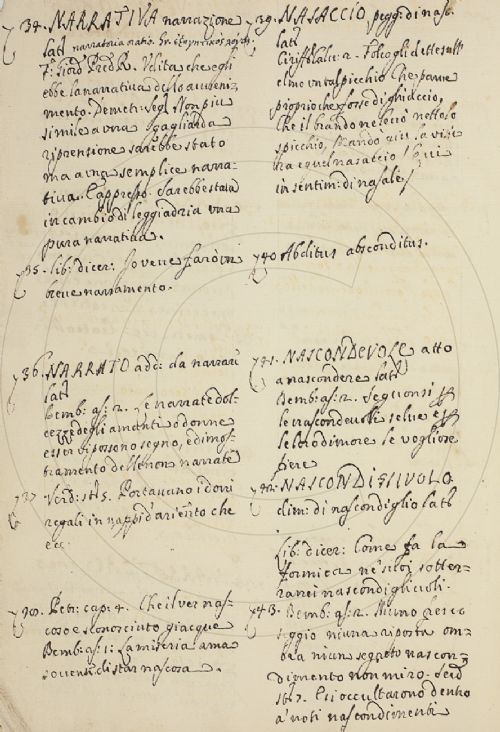 34. NARRATIVA narrazione
lat.
narratoria oratio. Gr.
7. Giord. Pred. R. Udita che egli
ebbe la narrativa dello avveni=
mento. Demetr. Segn. Non piu
simile a una gagliarda
riprensione sarebbe stato
ma a una semplice narra=
tiva. E appresso: Sarebbe stata
in cambio di leggiadria una
pura narrativa.
35. lib: dicer: Io ve ne farò in
breve narramento.
36. NARRATO add: da narrare
lat.
Bemb: as: 2. Se narrate dol=
cezze degli amanti o donne
esser vi possono segno, e dimos=
tramento delle non narrate
37. 5. Portavano i doni
regali in nappi d'ariento che
ec:
Petr: cap: 4. Che il ver nas=
coso e sconosciuto giacque
Bemb: as: 1: La miseria ama
sovente di star nascosa.
39. NASACCIO pegg: di naso.
lat.
Ciriff. Calv: 2. E dette sull'
elmo un tal picchio Che parve
proprio che fosse di ghiaccio,
Che il brando ne levò netto lo
spicchio, giu la visie
ra e quel nasaccio
in sentim: di nasale
40 Abditus absconditus.
41. NASCONDEVOLE atto
a nascondere lat.
Bemb: as: 2. Seguonsi
le nascondevoli selve e
le loro dimore se vogliose
fiere
42. NASCONDIGLIVOLO
dim: di nascondiglio lat.
lib: dicer: Come fa la
formica ne' suoi sotter=
ranei nascondigliuoli.
43. Bemb: as: 2. Niuno
seggio niuna riposta om=
bra niun segreto nascon=
dimento non miro. Seid
occultarono dentro
a' noti nascondimenti